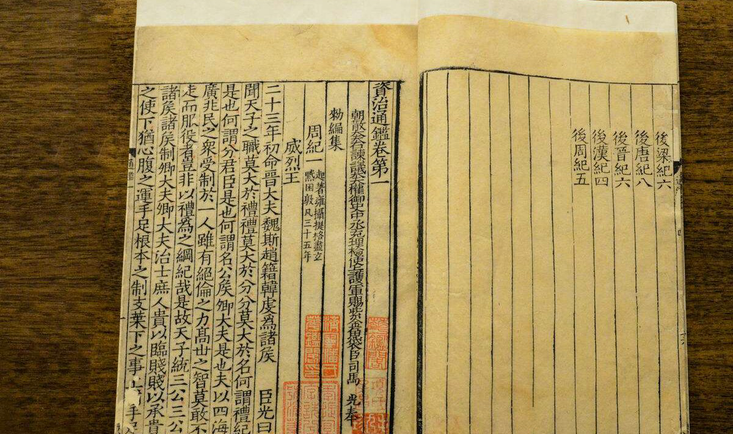 後梁紀六
後唐紀八
後晉紀六
後漢紀四
後周紀五
資治通鑑卷第一
朝散大夫右諫議大夫權御史中丞充理檢使上護軍賜紫金魚袋臣司馬 光 奉
勑編集
周紀一 起著雍攝提格盡玄黓困敦凡三十五年
威烈王
二十三年初命晉大夫魏斯趙籍韓虔爲諸侯 臣光曰
聞天子之職莫大於禮禮莫大於分分莫大於名何謂禮紀
是也何謂分君臣是也何謂名公侯卿大夫是也夫以四海
廣兆民之衆受制於一人雖有絕倫之力高世之智莫敢不
走而服役者豈非以禮爲之綱紀哉是故天子統三公三公
諸侯諸侯制卿大夫卿大夫治士庶人貴以臨賤賤以承貴
之使下猶心腹之運手足根本之制支葉下之事上 手足